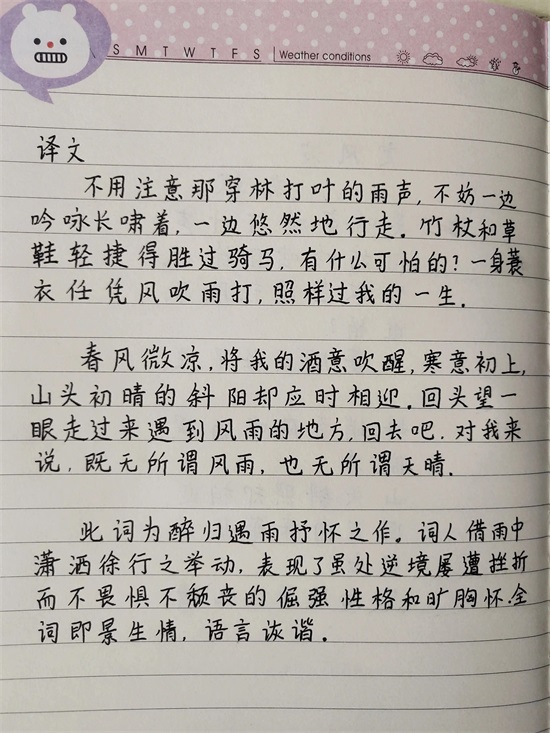 S M T W T F S Weather conditions
译文
不用注意那穿林打叶的雨声,不妨一边
吟咏长啸着,一边悠然地行走.竹杖和草
鞋轻捷得胜过骑马,有什么可怕的?一身蓑
衣任凭风吹雨打,照样过我的一生.
春风微凉,将我的酒意吹醒,寒意初上,
山头初晴的斜阳却应时相迎.回头望一
眼走过来遇到风雨的地方,回去吧.对我来
说,既无所谓风雨,也无所谓天晴.
此词为醉归遇雨抒怀之作。词人借雨中
潇洒徐行之举动,表现了虽处逆境屡遭挫折
而不畏惧不颓丧的倔强性格和旷胸怀.全
词即景生情,语言诙谐.